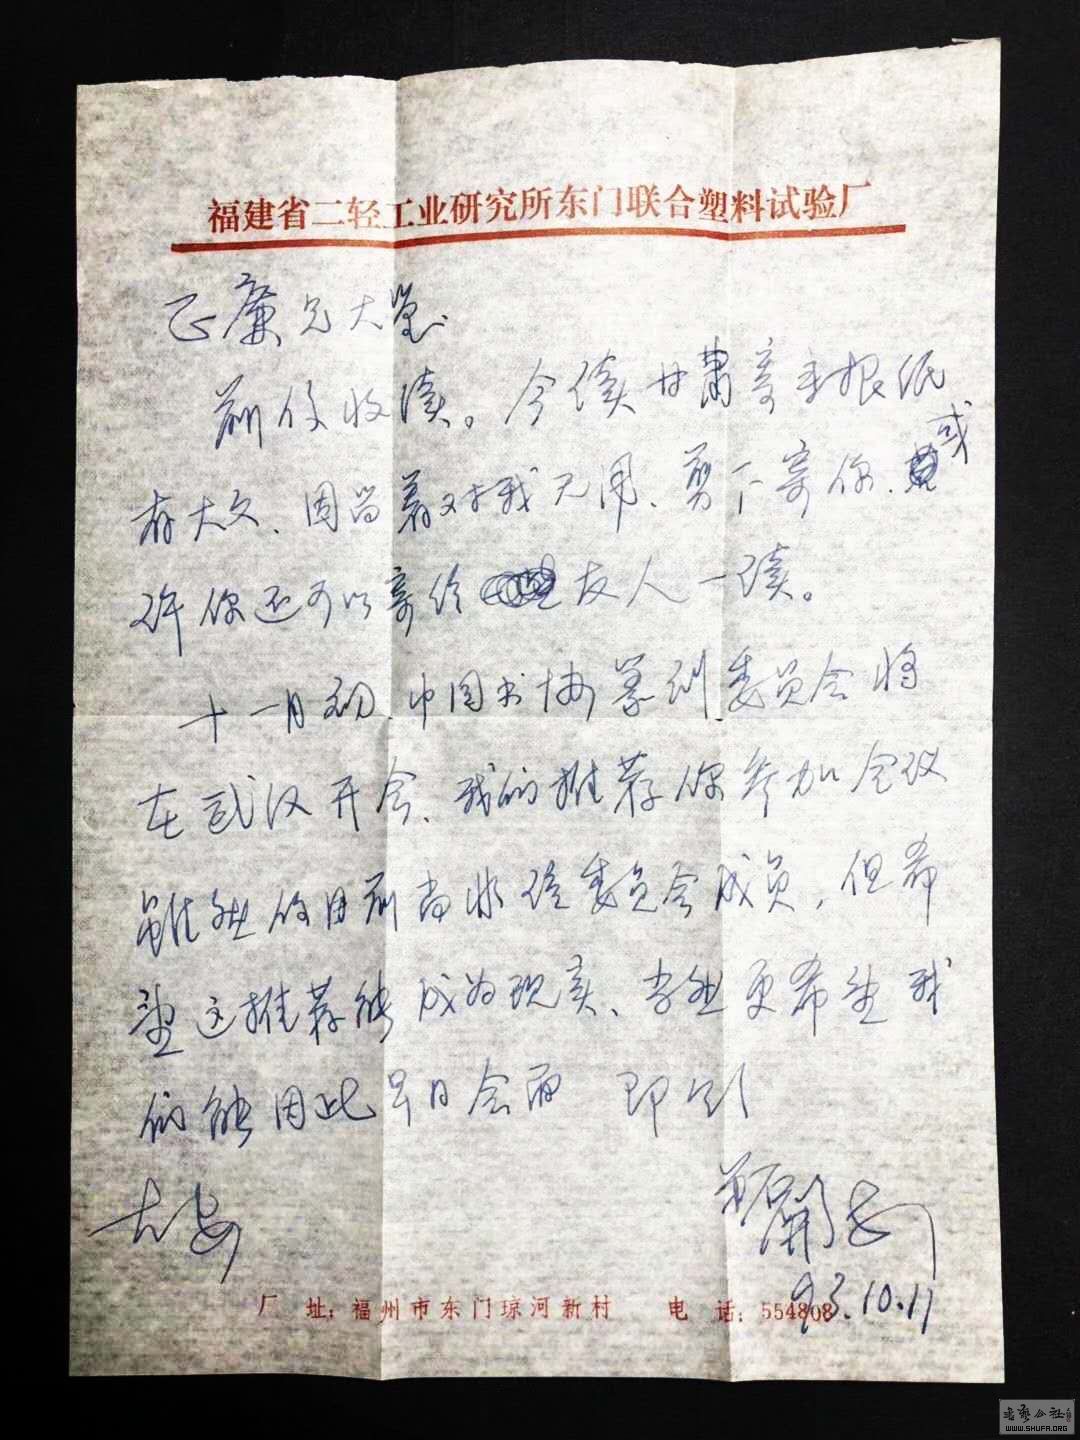 福建省二轻工业研究所东门联合塑料试验厂
正廉兄大鉴
前信收读。今读甘肃寄来报纸
有大文、因留着对我无用、剪下寄你、或
许你还可以寄给友人一读。
十一月初、中国书协篆刻委员会将
在武汉开会、我们推荐你参加会议
虽然你目前尚非委员会成员，但希
望这推荐能成为现实、当然更希望我
们能因此早日会面 即颂
大安
93.10.11
厂 址：福州市东门琼河新村 电 话：554808
WWW.SHUFA.ORG